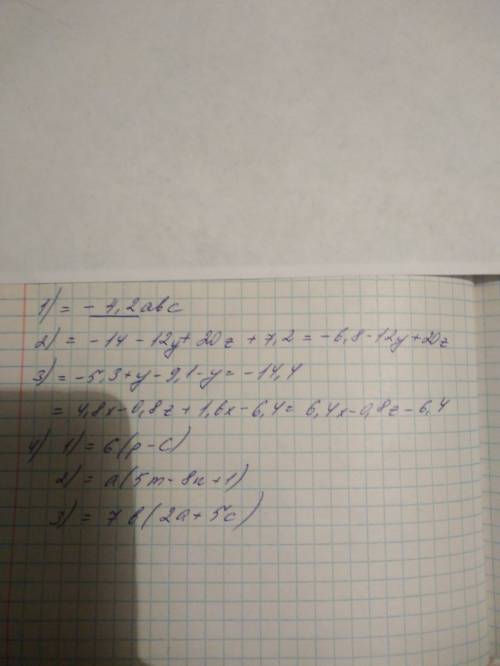 1) = - 4,2авс
2) = -14 - 12y + 20z + 7,2 = -6,8 - 12y + 20z
3) = -5,3 + y - 9,1 - y = -14,4
= 4,8x - 0,8z + 1,6x - 6,4 = 6,4x - 0,8z - 6,4
4) 1) = 6(p - c)
2) = a(5m - 8n + 1)
3) = 7в(2a + 5c)